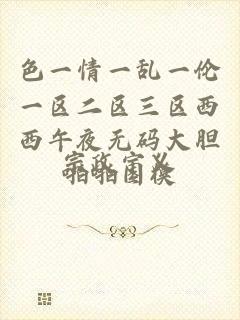 色一情一乱一伦
一区二区三区西
西午夜无码大胆
啪啪国模